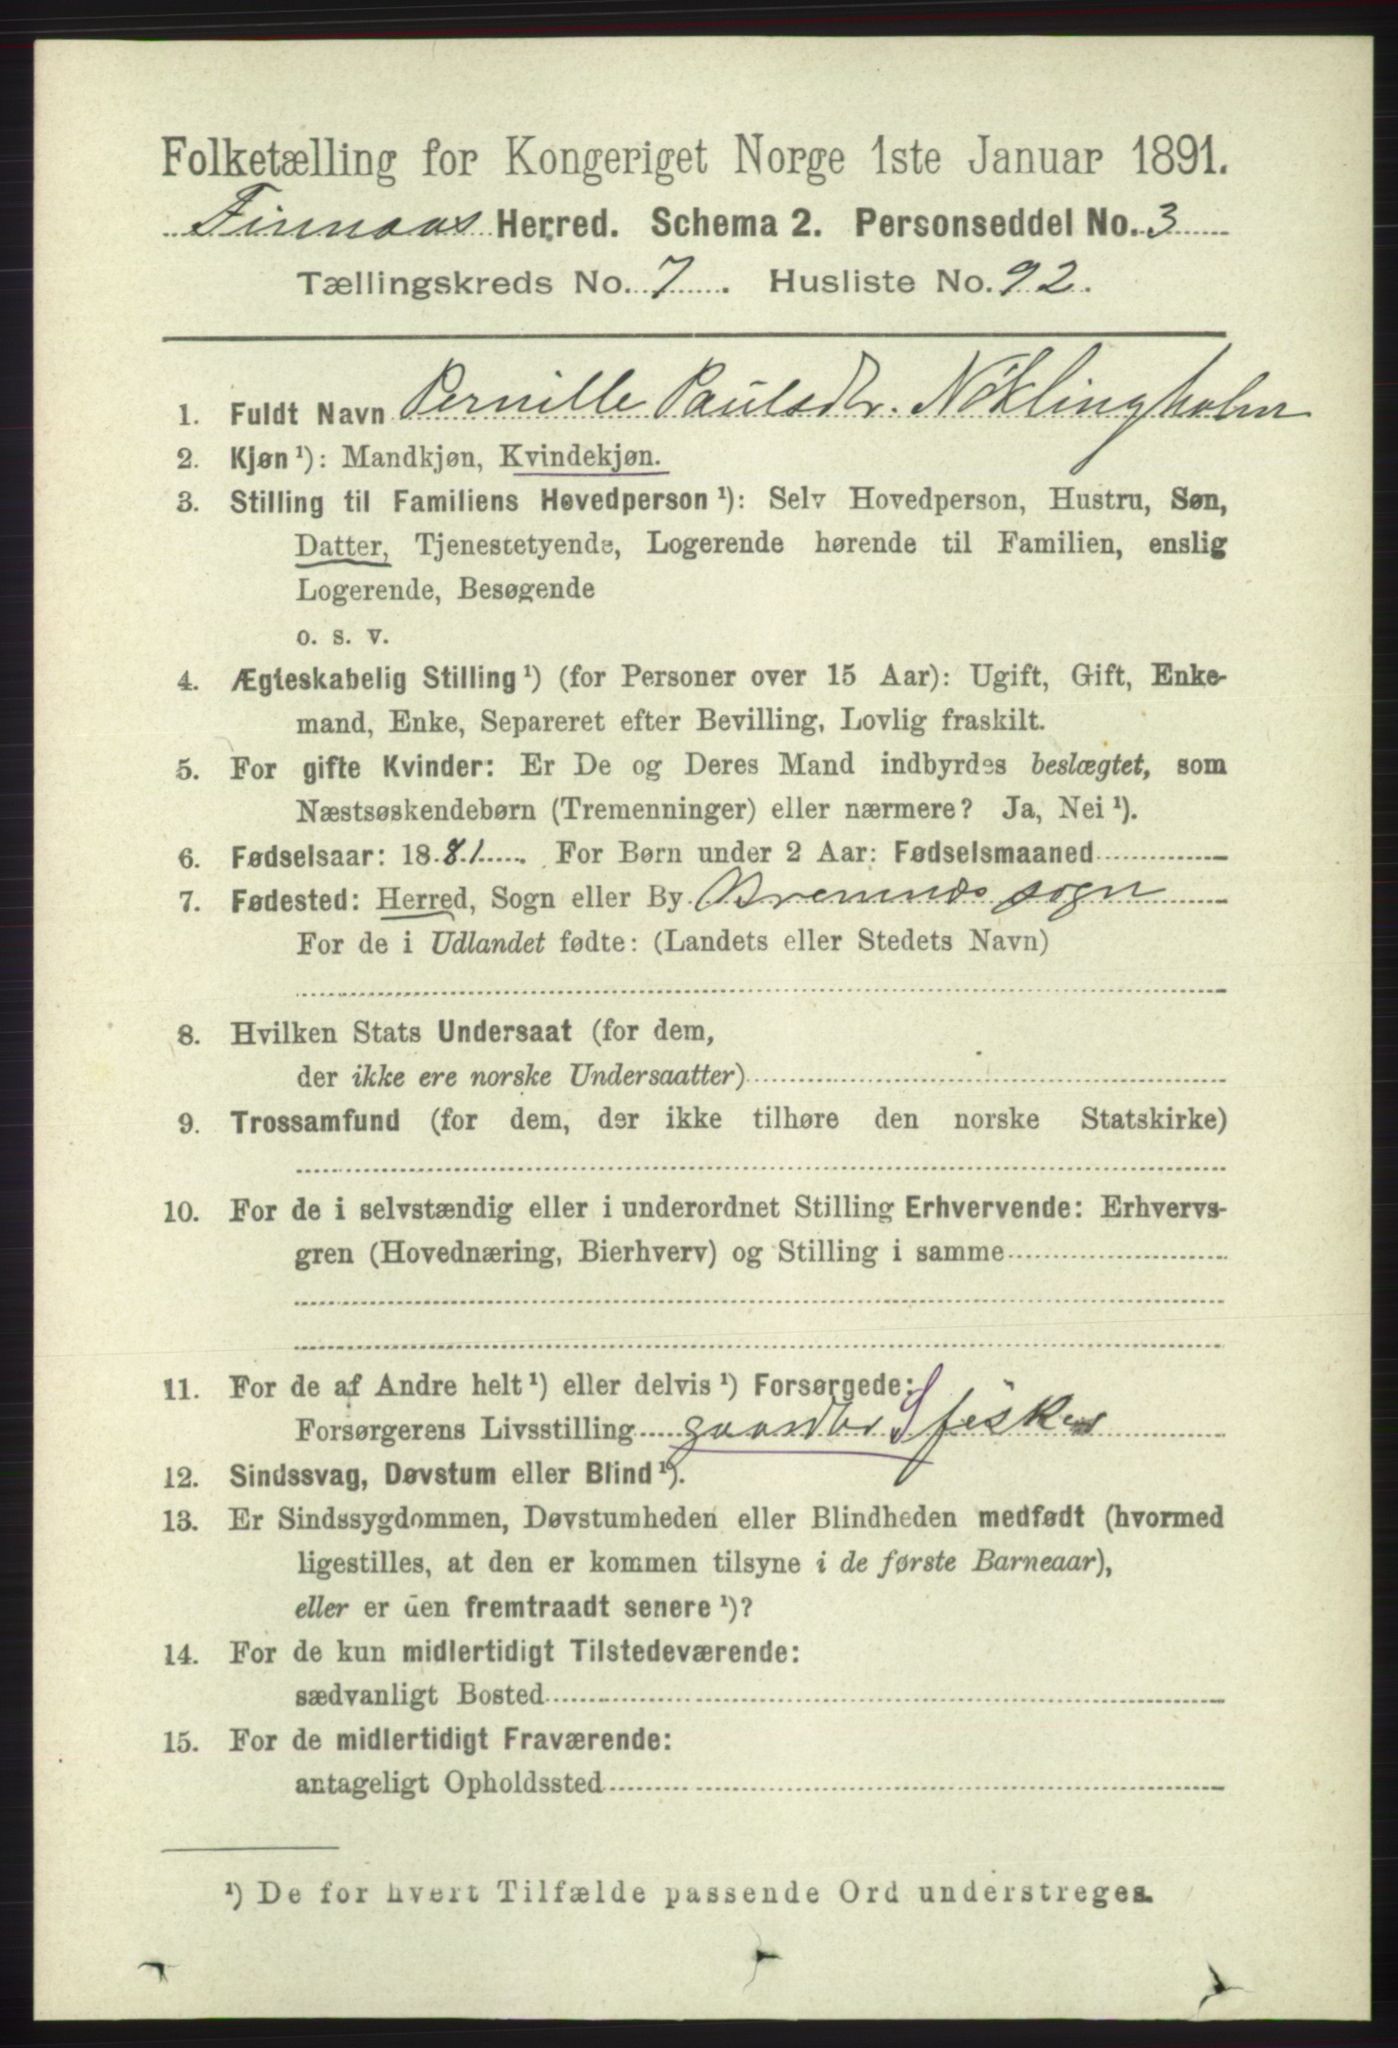 Folketælling for Kongeriget Norge 1ste Januar 1891.
Finnaas Herred. Schema 2. Personseddel No. 3
Tællingskreds No. 7. Husliste No. 92.
1. Fuldt Navn Pernille Paulsdtr. Nöklingholm
2. Kjøn ¹): Mandkjøn, Kvindekjøn.
3. Stilling til Familiens Hovedperson ¹): Selv Hovedperson, Hustru, Søn,
Datter, Tjenestetyende, Logerende hørende til Familien, enslig
Logerende, Besøgende
o. s. v.
4. Ægteskabelig Stilling ¹) (for Personer over 15 Aar): Ugift, Gift, Enke-
mand, Enke, Separeret efter Bevilling, Lovlig fraskilt.
5. For gifte Kvinder: Er De og Deres Mand indbyrdes beslægtet, som
Næstsøskendebørn (Tremenninger) eller nærmere? Ja, Nei ¹).
6. Fødselsaar: 1881. For Børn under 2 Aar: Fødselsmaaned
7. Fødested: Herred, Sogn eller By Bremnæs sogn
For de i Udlandet fødte: (Landets eller Stedets Navn)
8. Hvilken Stats Undersaat (for dem,
der ikke ere norske Undersaatter)
9. Trossamfund (for dem, der ikke tilhøre den norske Statskirke)
10. For de i selvstændig eller i underordnet Stilling Erhvervende: Erhvervs-
gren (Hovednæring, Bierhverv) og Stilling i samme
11. For de af Andre helt ¹) eller delvis ¹) Forsørgede:
Forsørgerens Livsstilling gaardbr S fisker
12. Sindssvag, Døvstum eller Blind ¹).
13. Er Sindssygdommen, Døvstumheden eller Blindheden medfødt (hvormed
ligestilles, at den er kommen tilsyne i de første Barneaar),
eller er den fremtraadt senere ¹)?
14. For de kun midlertidigt Tilstedeværende:
sædvanligt Bosted
15. For de midlertidigt Fraværende:
antageligt Opholdssted
¹) De for hvert Tilfælde passende Ord understreges.